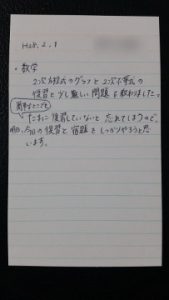 H28.2.9
・数学
2次方程式のグラフと2次不等式の
復習と少し難しい問題を教わりました。
簡単なところでも
たまに復習していないと忘れてしまうので、
明日、今日の復習と宿題をしっかりやろうと思
います。